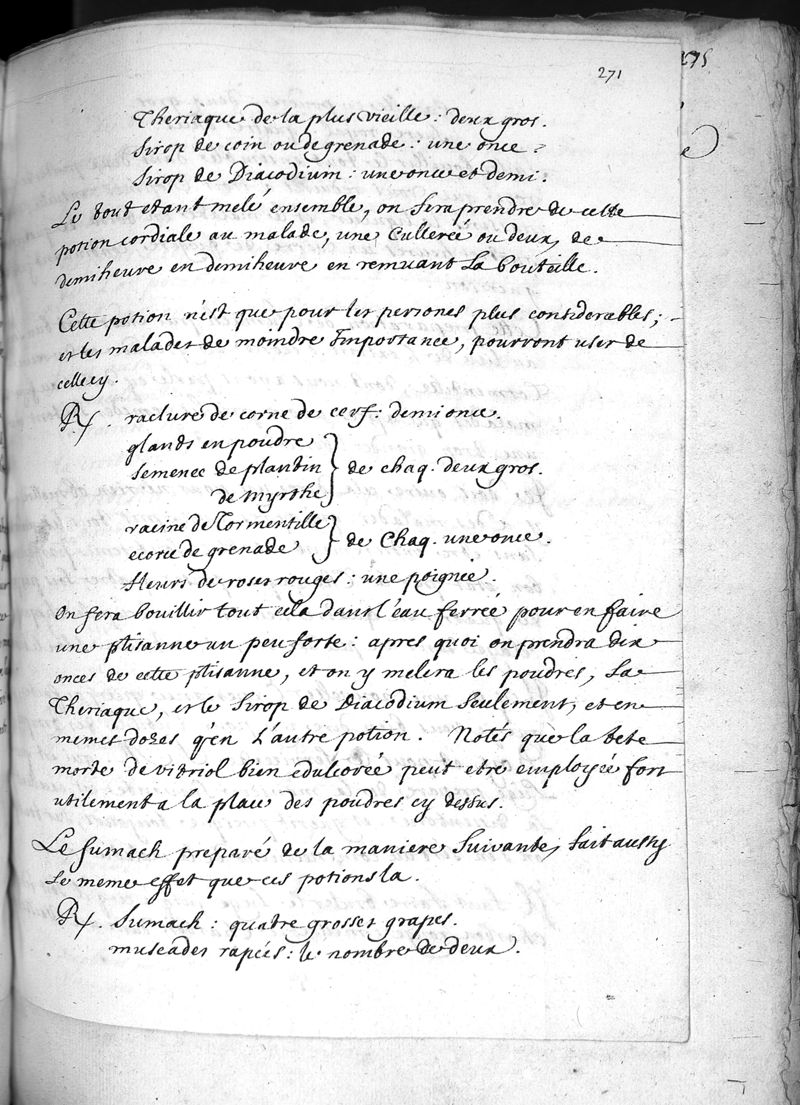 271
275
Theriaque de la plus vieille : deux gros.
Sirop de coin ou de grenade : une once.
Sirop de Diacodium : une once et demi.
Le tout etant melé ensemble, on fera prendre de cette
potion cordiale au malade, une Cullereé ou deux, de
demiheure en demiheure en remuant la bouteille.
Cette potion n'est que pour les persones plus considerables ;
et les malades de moindre importance, pourront user de
celle cy.
R/. raclure de corne de cerf : demi once.
glands en poudre
semence de plantin } de chaq. deux gros.
de Myrthe
racine de Tormentille
ecorce de grenade } de Chaq. une once.
fleurs de roses rouges : une poignée.
On fera bouillir tout cela dans l'eau ferreé pour en faire
une ptisanne un peu forte : apres quoi on prendra dix
onces de cette ptisanne, et on y melera les poudres, la
Theriaque, et le Sirop de Diacodium seulement, et en
memes dozes q'en L'autre potion. Notés que la tete
morte de vitriol bien edulcoreé peut etre employeé fort
utilement a la place des poudres cy dessus.
Le sumach preparé de la maniere suivante, fait aussy
le meme effet que ces potions la.
R/. Sumach : quatre grosses grapes.
muscades rapées : le nombre de deux.